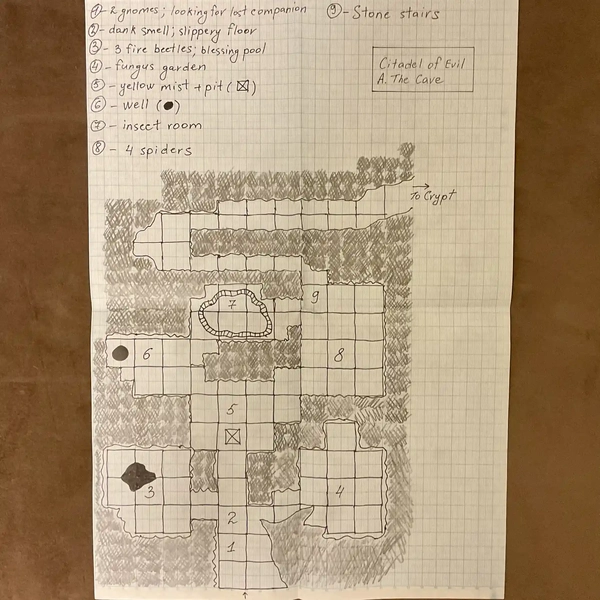 ① - 2 gnomes; looking for lost companion
② - dank smell; slippery floor
③ - 3 fire beetles; blessing pool
④ - fungus garden
⑤ - yellow mist + pit (☒)
⑥ - well (●)
⑦ - insect room
⑧ - 4 spiders
⑨ - Stone stairs
Citadel of Evil
A. The Cave
→
To Crypt
7
9
6
8
5
3
4
2
1
↑